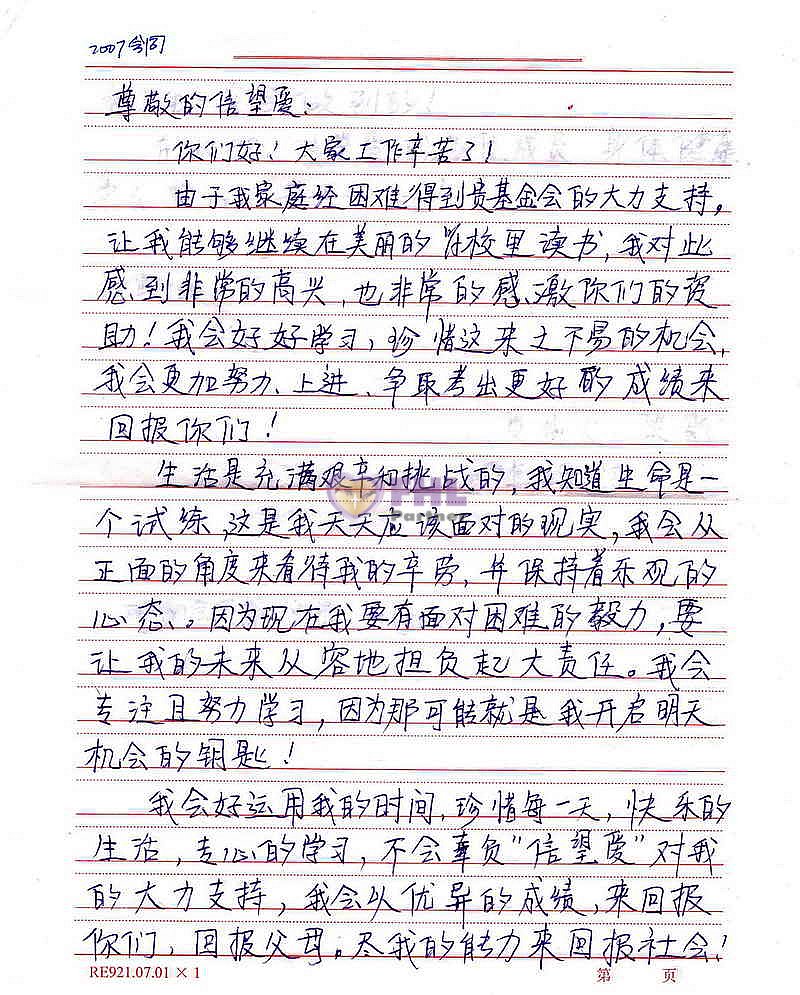 2007会宁
尊敬的信望爱:
你们好!大家工作辛苦了!
由于我家庭经困难得到贵基金会的大力支持。
让我能够继续在美丽的学校里读书,我对此
感到非常的高兴,也非常的感激你们的资
助!我会好好学习,珍惜这来之不易的机会,
我会更加努力、上进、争取考出更好的成绩来
回报你们!
生活是充满艰辛和挑战的,我知道生命是一
个试练,这是我天天应该面对的现实,我会从
正面的角度来看待我的辛劳,并保持着乐观的
心态。因为现在我要有面对困难的毅力,要
让我的未来从容地担负起大责任。我会
专注且努力学习,因为那可能就是我开启明天
机会的钥匙!
我会好运用我的时间,珍惜每一天,快乐的
生活,专心的学习,不会辜负"信望爱"对我
的大力支持,我会以优异的成绩,来回报
你们,回报父母。尽我的能力来回报社会!
FHL
Partner
RE921.07.01 × 1 第 页